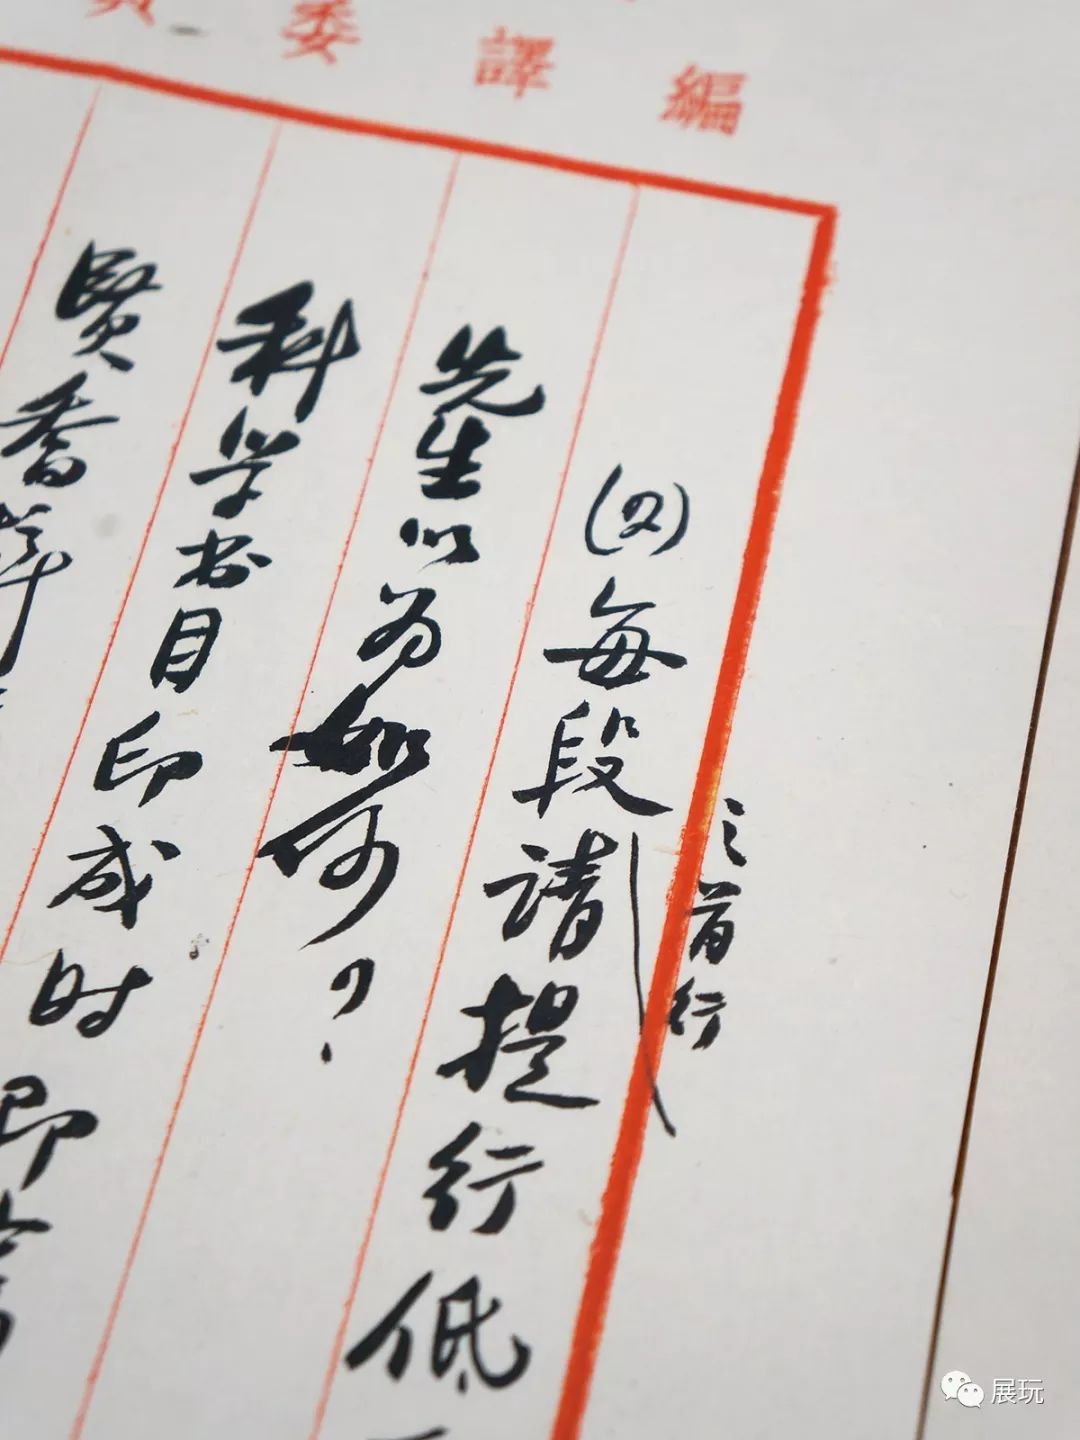 編譯委員
(四)每段請提行低
之首行
先生以为如何?
科学书目印成时即
賢喬梓
展玩